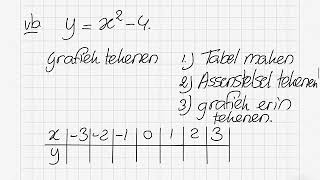 vb y = x² - 4.
grafiek tekenen
1) Tabel maken
2) Assenstelsel tekenen!
3) grafiek erin
tekenen.
x -3 -2 -1 0 1 2 3
y